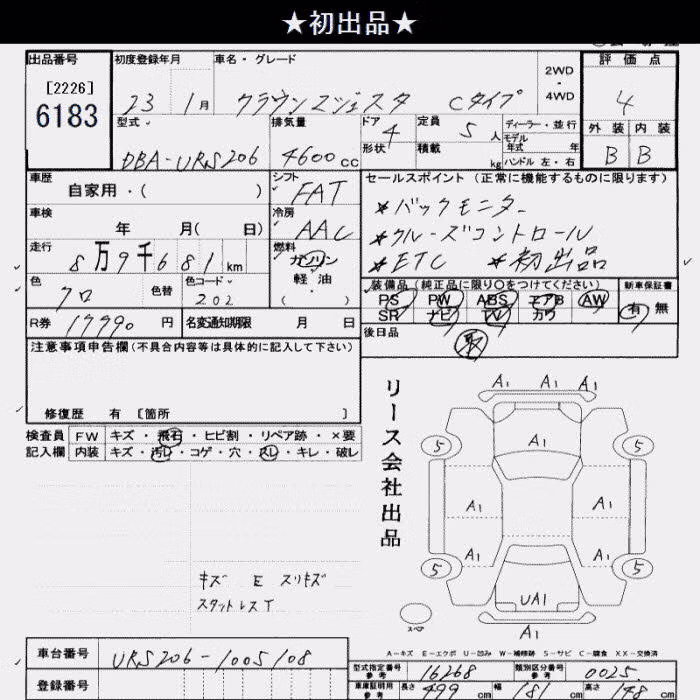 ★初出品★
出品番号 初度登録年月 車名・グレード 2WD・4WD 評価点
[2226]
6183
23 1月 クラウンマジェスタ Cタイプ 4
型式 排気量 ドア 4 定員 5人 ディーラー・並行
外装 内装
形状 積載 kg モデル年式 年
ハンドル 左・右
DBA-URS206 4600cc B B
車歴 シフト FAT セールスポイント (正常に機能するものに限ります)
自家用・( )
車検 冷房 AAC *バックモニター
年 月( 日) *クルーズコントロール
走行 8万9千681km 燃料 ガソリン *ETC *初出品
軽油
・( )
色 クロ 色替 色コード 202
装備品(純正品に限り〇をつけてください) 新車保証書
PS PW ABS エアB AW 有 無
SR ナビ TV カワ
R券 17990円 名変通知期限 月 日
後日品 取
注意事項申告欄(不具合内容等は具体的に記入して下さい)
修復歴 有 [箇所 ]
リース会社出品
検査員 FW キズ・飛石・ヒビ割・リペア跡・×要
記入欄 内装 キズ・汚レ・コゲ・穴・スレ・キレ・破レ
キズ E スリキズ
スタットレスT
A1 A1 A1
5 A1 5
A1 A1
A1 A1
5 5
UA1
スペア A1
A-キズ E-エクボ U-凹み W-補修跡 S-サビ C-腐食 XX-交換済
車台番号 URS206-1005108
登録番号
型式指定番号 参考 16268 類別区分番号 参考 0025
車庫証明用 参考 長さ 499cm 幅 181cm 高さ 148cm